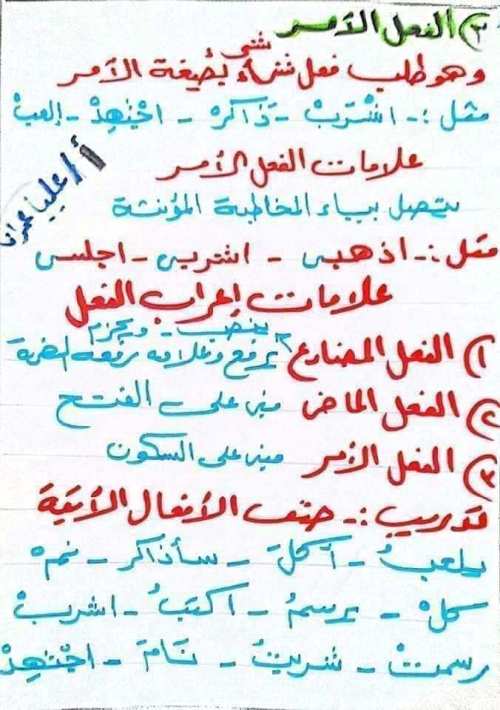 ٣) الفعل الأمر
وهو طلب فعل شئ بصيغة الأمر
مثل :- اشْتربْ - ذَاكرْ - اجْتهدْ - العبْ
علامات الفعل الأمر
يتصل بياء المخاطبة المؤنثة
مثل :- اذهبى - اشربى - اجلسى
علامات إعراب الفعل
١) الفعل المضارع يرفع وعلامة رفعه الضمة
ينصب - ويجزم
٢) الفعل الماضى مبنى على الفتح
٣) الفعل الأمر مبنى على السكون
تدريب :- صنف الأفعال الآتية
يلعبُ - أكلَ - سأذاكر - نمْ
كلْ - يرسمُ - اكتبُ - اشربْ
رسمتْ - شربتُ - نَامَ - اجْتهدْ
أ/ عليا عمران